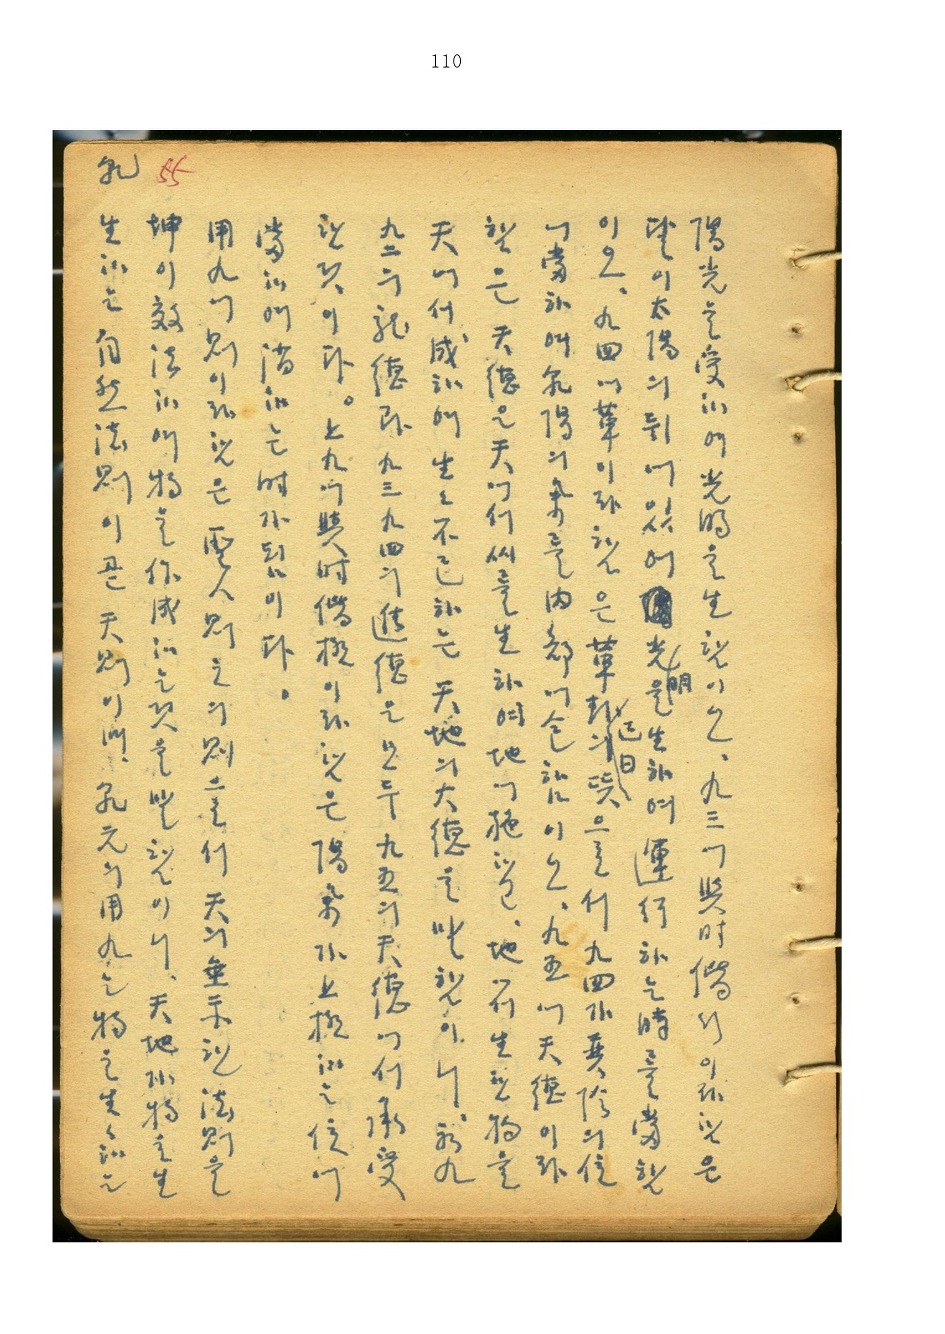 110
乾 55
陽光을 受하여 光明을 生함이오、九三에 與時偕行이라함은
달이 太陽의 뒤에 있어 光明을 生하여 運行하는 時를 當함
이오、九四에 革이라함은 革卦의 已日로서 九四가 巽陰의 位
에 當하여 乾陽의 氣를 內部에 함이오、九五에 天德이라
함은 天德은 天에서 씨를 生하여 地에 施하고、地에서 生한 物을
天에서 成하여 生生不已하는 天地의 大德을 말함이니、
九二의 龍德과 九三九四의 進德은 모두 九五의 天德에서 承受
한 것이다。上九의 與時偕極이라함은 陽氣가 上極하는 位에
當하여 消하는 時가 됨이다。
用九에 則이라함은 聖人則之의 則으로서 天의 垂示한 法則을
坤이 效法하여 物을 作成하는 것을 말함이니、天地가 物을 生
生하는 自然法則이 곧 天則이며、乾元의 用九는 物을 生生하는